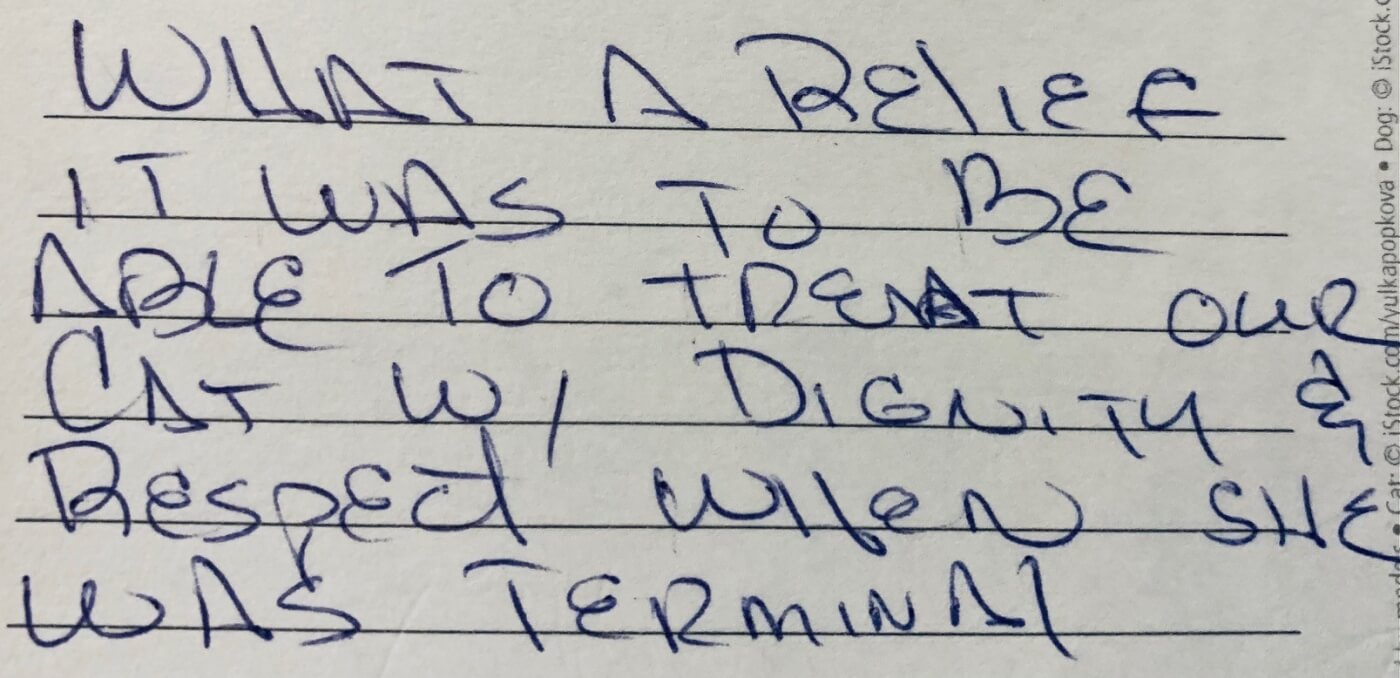 WHAT A RELIEF
IT WAS TO BE
ABLE TO TREAT OUR
CAT W/ DIGNITY &
RESPECT WHEN SHE
WAS TERMINAL
© iStock.com/yulkapopkova • Dog: © iStock.c